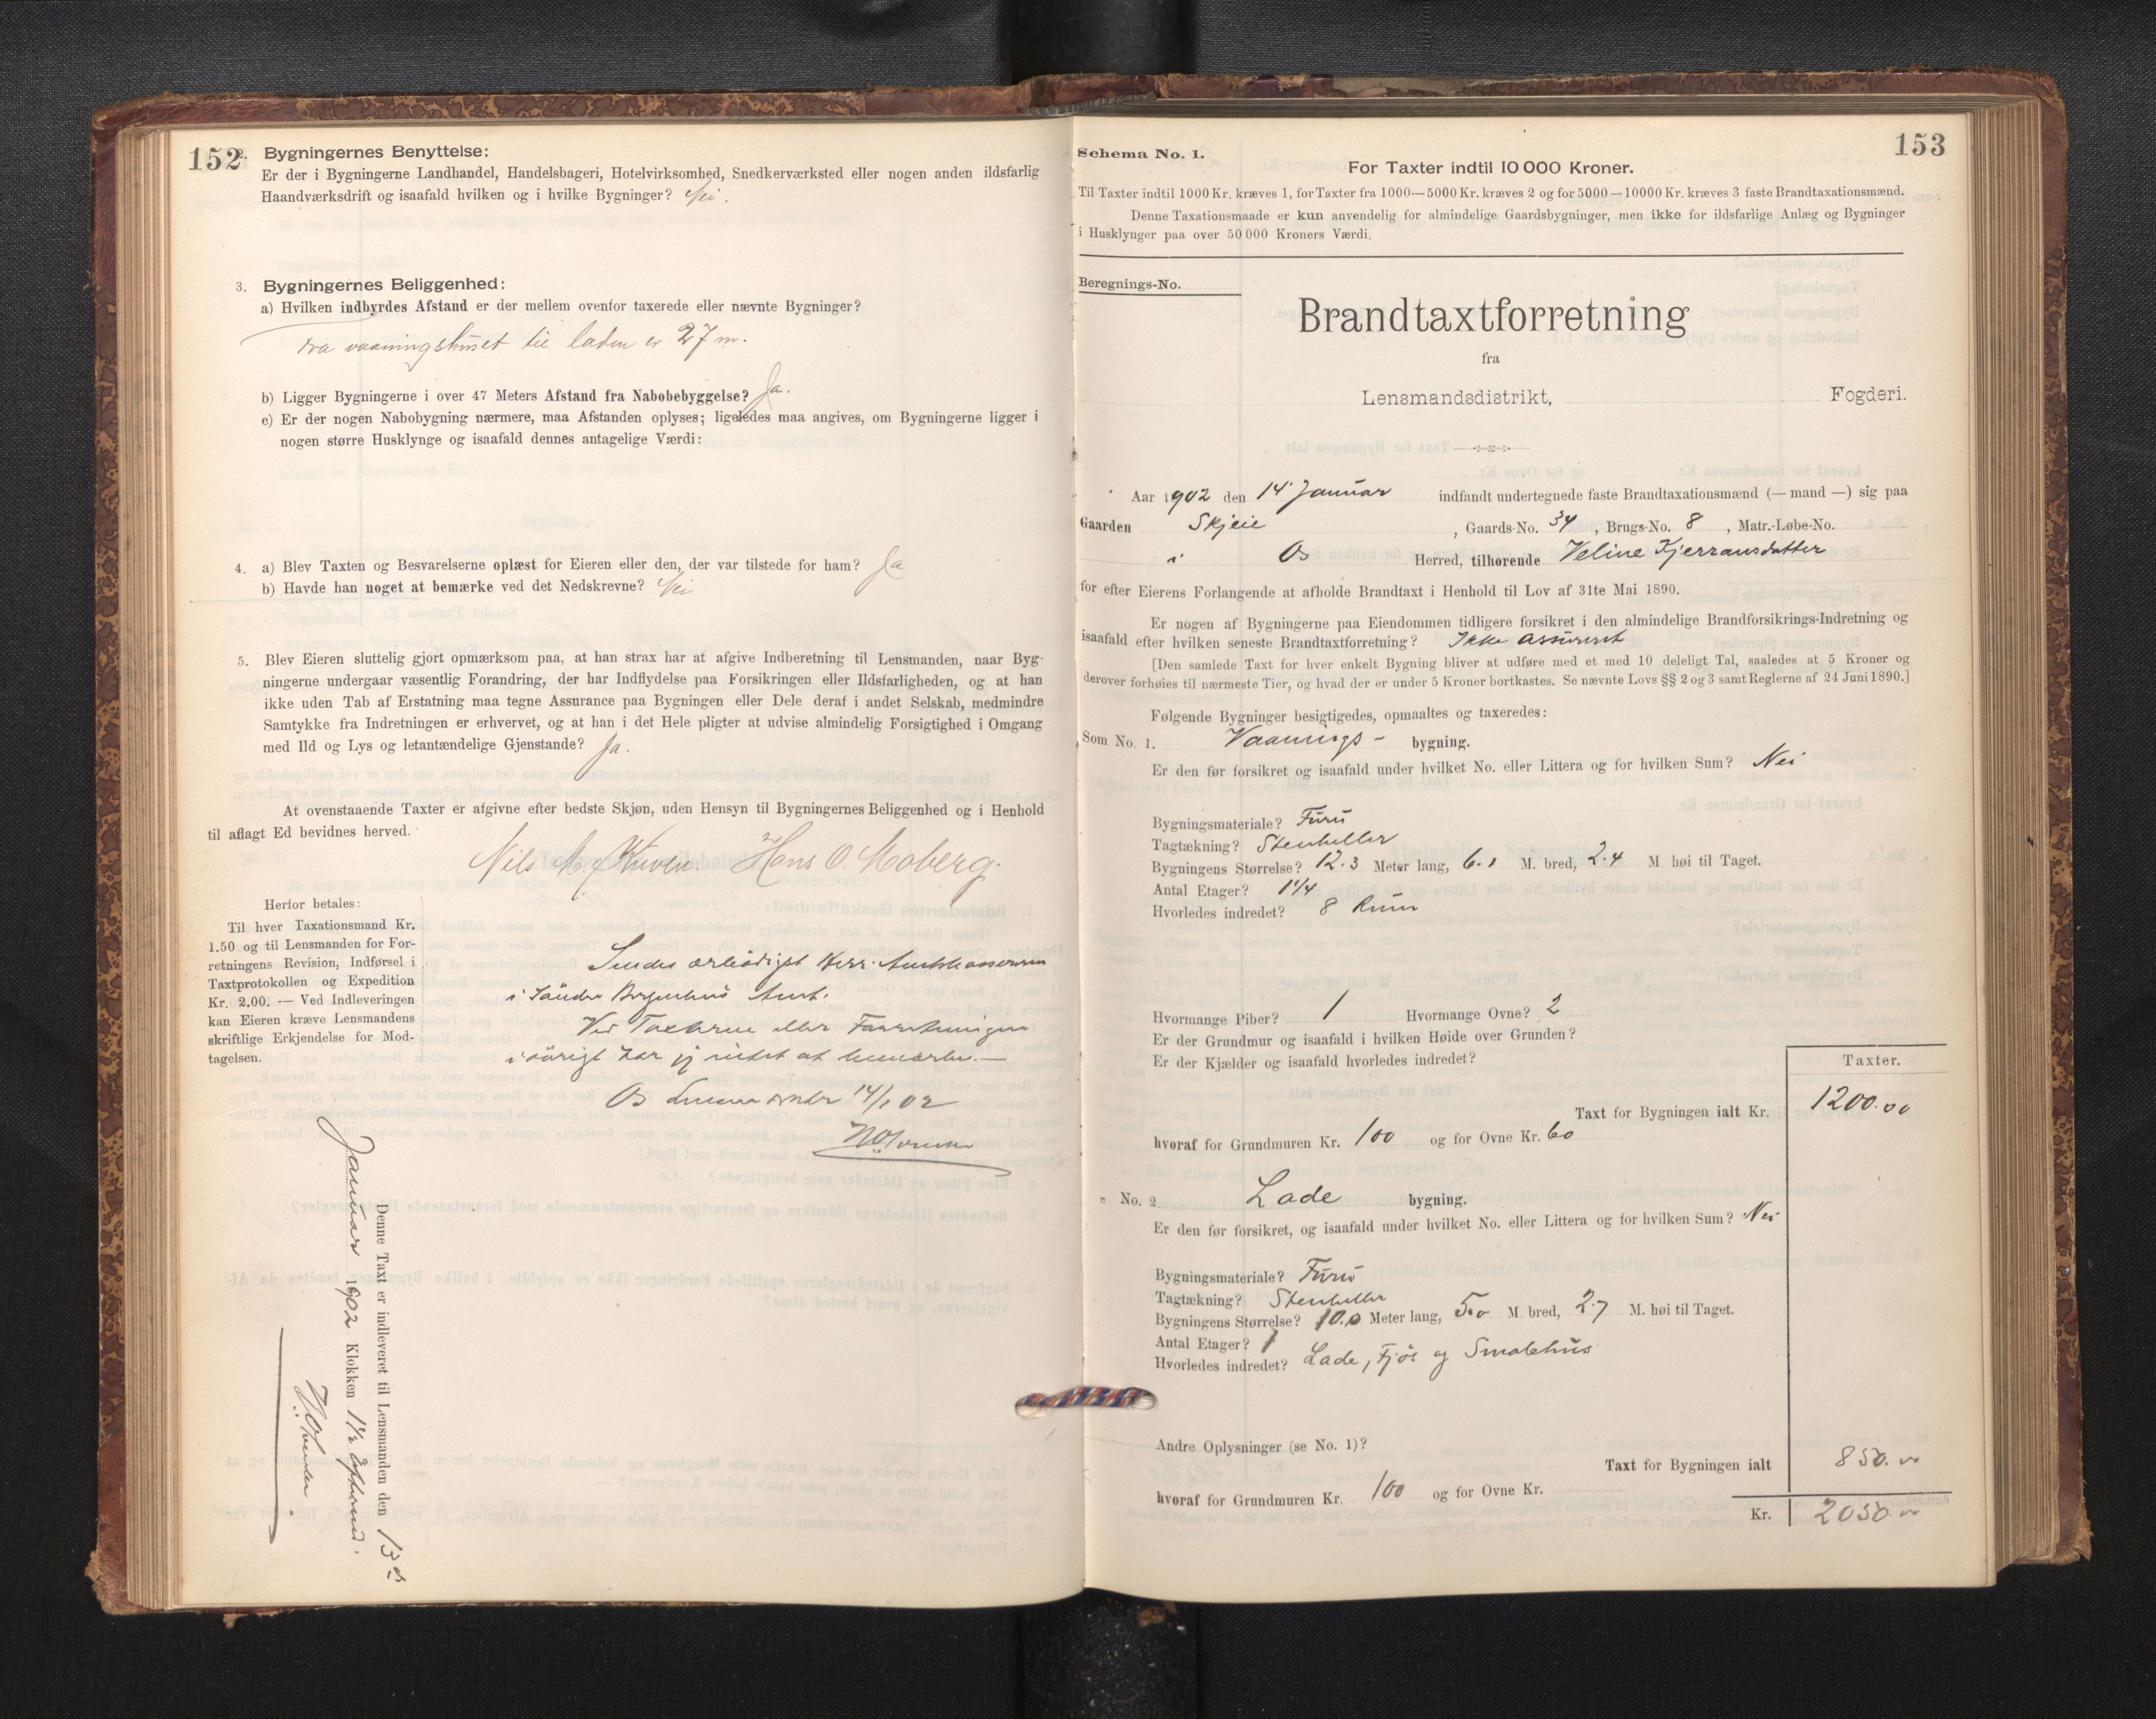 152
2. Bygningernes Benyttelse:
Er der i Bygningerne Landhandel, Handelsbageri, Hotelvirksomhed, Snedkerværksted eller nogen anden ildsfarlig
Haandværksdrift og isaafald hvilken og i hvilke Bygninger? Nei.
3. Bygningernes Beliggenhed:
a) Hvilken indbyrdes Afstand er der mellem ovenfor taxerede eller nævnte Bygninger?
Fra vaaningshuset til laden er 27 m.
b) Ligger Bygningerne i over 47 Meters Afstand fra Nabobebyggelse? Ja.
c) Er der nogen Nabobygning nærmere, maa Afstanden oplyses; ligeledes maa angives, om Bygningerne ligger i
nogen større Husklynge og isaafald dennes antagelige Værdi:
4. a) Blev Taxten og Besvarelserne oplæst for Eieren eller den, der var tilstede for ham? Ja
b) Havde han noget at bemærke ved det Nedskrevne? Nei
5. Blev Eieren sluttelig gjort opmærksom paa, at han strax har at afgive Indberetning til Lensmanden, naar Byg-
ningerne undergaar væsentlig Forandring, der har Indflydelse paa Forsikringen eller Ildsfarligheden, og at han
ikke uden Tab af Erstatning maa tegne Assurance paa Bygningen eller Dele deraf i andet Selskab, medmindre
Samtykke fra Indretningen er erhvervet, og at han i det Hele pligter at udvise almindelig Forsigtighed i Omgang
med Ild og Lys og letantændelige Gjenstande? Ja.
At ovenstaaende Taxter er afgivne efter bedste Skjøn, uden Hensyn til Bygningernes Beliggenhed og i Henhold
til aflagt Ed bevidnes herved.
Nils M. Kuven. Hans O. Moberg.
Herfor betales:
Til hver Taxationsmand Kr.
1.50 og til Lensmanden for For-
retningens Revision, Indførsel i
Taxtprotokollen og Expedition
Kr. 2.00. — Ved Indleveringen
kan Eieren kræve Lensmandens
skriftlige Erkjendelse for Mod-
tagelsen.
Sendes ærbødigst Herr Amtskassereren
i Søndre Bergenhus Amt.
Ved Taxterne eller Forretningen
iøvrigt har jeg intet at bemærke.—
Os 14/1 02
Denne Taxt er indleveret til Lensmanden den 13de
Januar 1902 Klokken 1 1/2 Efterm.
153
Schema No. 1.
For Taxter indtil 10 000 Kroner.
Til Taxter indtil 1000 Kr. kræves 1, for Taxter fra 1000—5000 Kr. kræves 2 og for 5000—10000 Kr. kræves 3 faste Brandtaxationsmænd.
Denne Taxationsmaade er kun anvendelig for almindelige Gaardsbygninger, men ikke for ildsfarlige Anlæg og Bygninger
i Husklynger paa over 50 000 Kroners Værdi.
Beregnings-No.
Brandtaxtforretning
fra
Lensmandsdistrikt, Fogderi.
Aar 1902 den 14 Januar indfandt undertegnede faste Brandtaxationsmænd (— mand —) sig paa
Gaarden Skjeie, Gaards-No. 34, Brugs-No. 8, Matr.-Løbe-No.
i Os Herred, tilhørende Veline Kjerransdatter
for efter Eierens Forlangende at afholde Brandtaxt i Henhold til Lov af 31te Mai 1890.
Er nogen af Bygningerne paa Eiendommen tidligere forsikret i den almindelige Brandforsikrings-Indretning og
isaafald efter hvilken seneste Brandtaxtforretning? Ikke assureret
[Den samlede Taxt for hver enkelt Bygning bliver at udføre med et med 10 deleligt Tal, saaledes at 5 Kroner og
derover forhøies til nærmeste Tier, og hvad der er under 5 Kroner bortkastes. Se nævnte Lovs §§ 2 og 3 samt Reglerne af 24 Juni 1890.]
Følgende Bygninger besigtigedes, opmaaltes og taxeredes:
Som No. 1. Vaanings- bygning.
Er den før forsikret og isaafald under hvilket No. eller Littera og for hvilken Sum? Nei
Bygningsmateriale? Furu
Tagtækning? Stenheller
Bygningens Størrelse? 12.3 Meter lang, 6.1 M. bred, 2.4 M. høi til Taget.
Antal Etager? 1 1/4
Hvorledes indredet? 8 Rum
Hvormange Piber? 1 Hvormange Ovne? 2
Er der Grundmur og isaafald i hvilken Høide over Grunden?
Er der Kjælder og isaafald hvorledes indredet?
Taxter.
Taxt for Bygningen ialt Kr. 1200.00
hvoraf for Grundmuren Kr. 100 og for Ovne Kr. 60
" No. 2 Lade bygning.
Er den før forsikret, og isaafald under hvilket No. eller Littera og for hvilken Sum? Nei
Bygningsmateriale? Furu
Tagtækning? Stenheller
Bygningens Størrelse? 10.0 Meter lang, 5.0 M. bred, 2.7 M. høi til Taget.
Antal Etager? 1
Hvorledes indredet? Lade, Fjøs og Smalehus
Andre Oplysninger (se No. 1)?
Taxt for Bygningen ialt 850.00
hvoraf for Grundmuren Kr. 100 og for Ovne Kr.
Kr. 2050.00